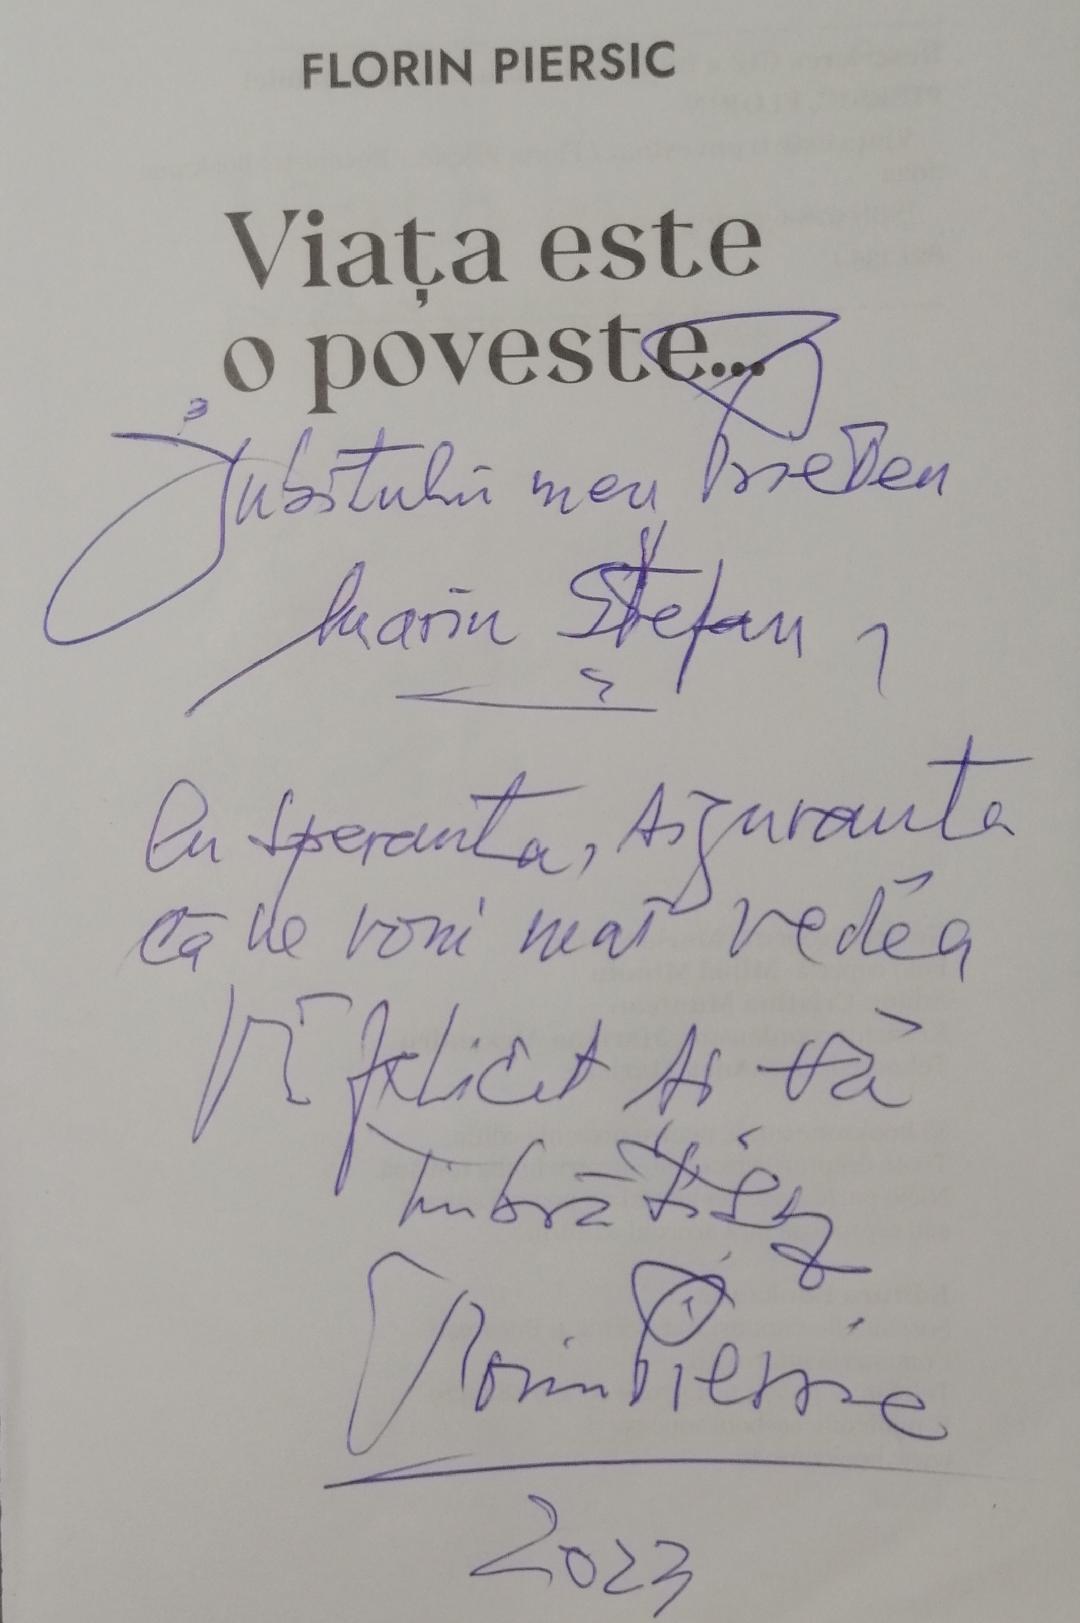 FLORIN PIERSIC
Viața este
o poveste...
Iubitului meu Prieten
Marin Ștefan,
Cu speranta, siguranta
că ne vom mai vedea
Vă felicit si vă
îmbrățișez
Florin Piersic
2023